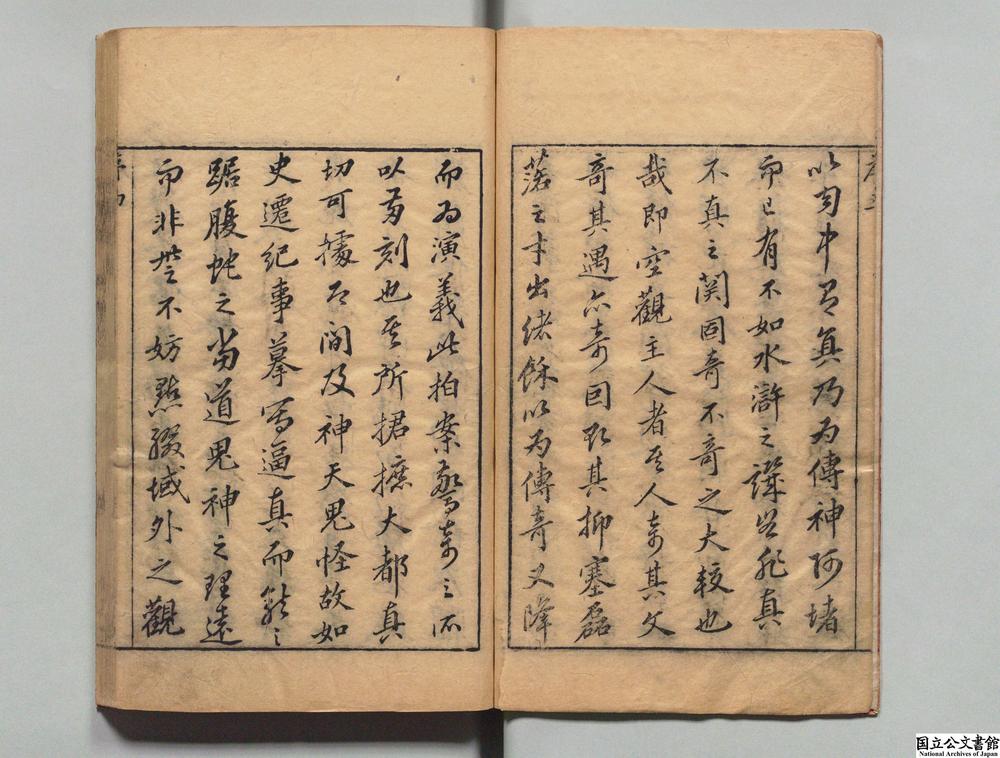 序三
以幻中有真乃為傳神阿堵
而已有不如水滸之譏豈非真
不真之関固奇不奇之大較也
哉即空觀主人者其人奇其文
奇其遇亦奇因取其抑塞磊
落之才出緒餘以為傳奇又降
而為演義此拍案驚奇之所
以兩刻也其所捃摭大都真
切可據即間及神天鬼怪故如
史遷紀事摹寫逼真而龍之
踞腹蛇之當道鬼神之理遠
而非無不妨點綴域外之觀
序四
国立公文書館
National Archives of Japan